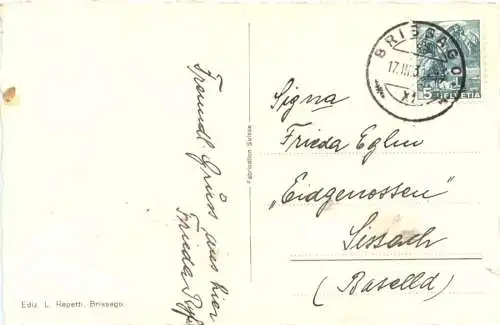 Freundl. Grüss aus hier
Frieda
Fabrication Suisse
BRISSAGO
17.III.3
XI
5
HELVETIA
Signa
Frieda Eglin
"Eidgenossen"
Sissach
(Baselld)
Ediz. L. Repetti, Brissago.